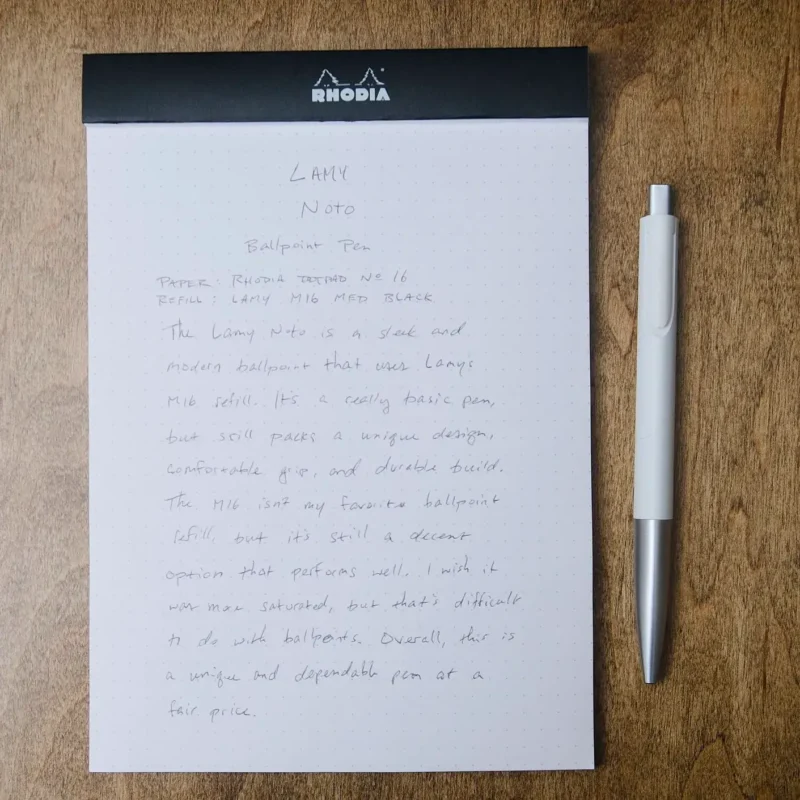 RHODIA
LAMY
Noto
Ballpoint Pen
PAPER: RHODIA DOTPAD No 16
REFILL: LAMY M16 MED BLACK
The Lamy Noto is a sleek and
modern ballpoint that uses Lamy's
M16 refill. It's a really basic pen,
but still packs a unique design,
comfortable grip, and durable build.
The M16 isn't my favorite ballpoint
refill, but it's still a decent
option that performs well. I wish it
was more saturated, but that's difficult
to do with ballpoints. Overall, this is
a unique and dependable pen at a
fair price.